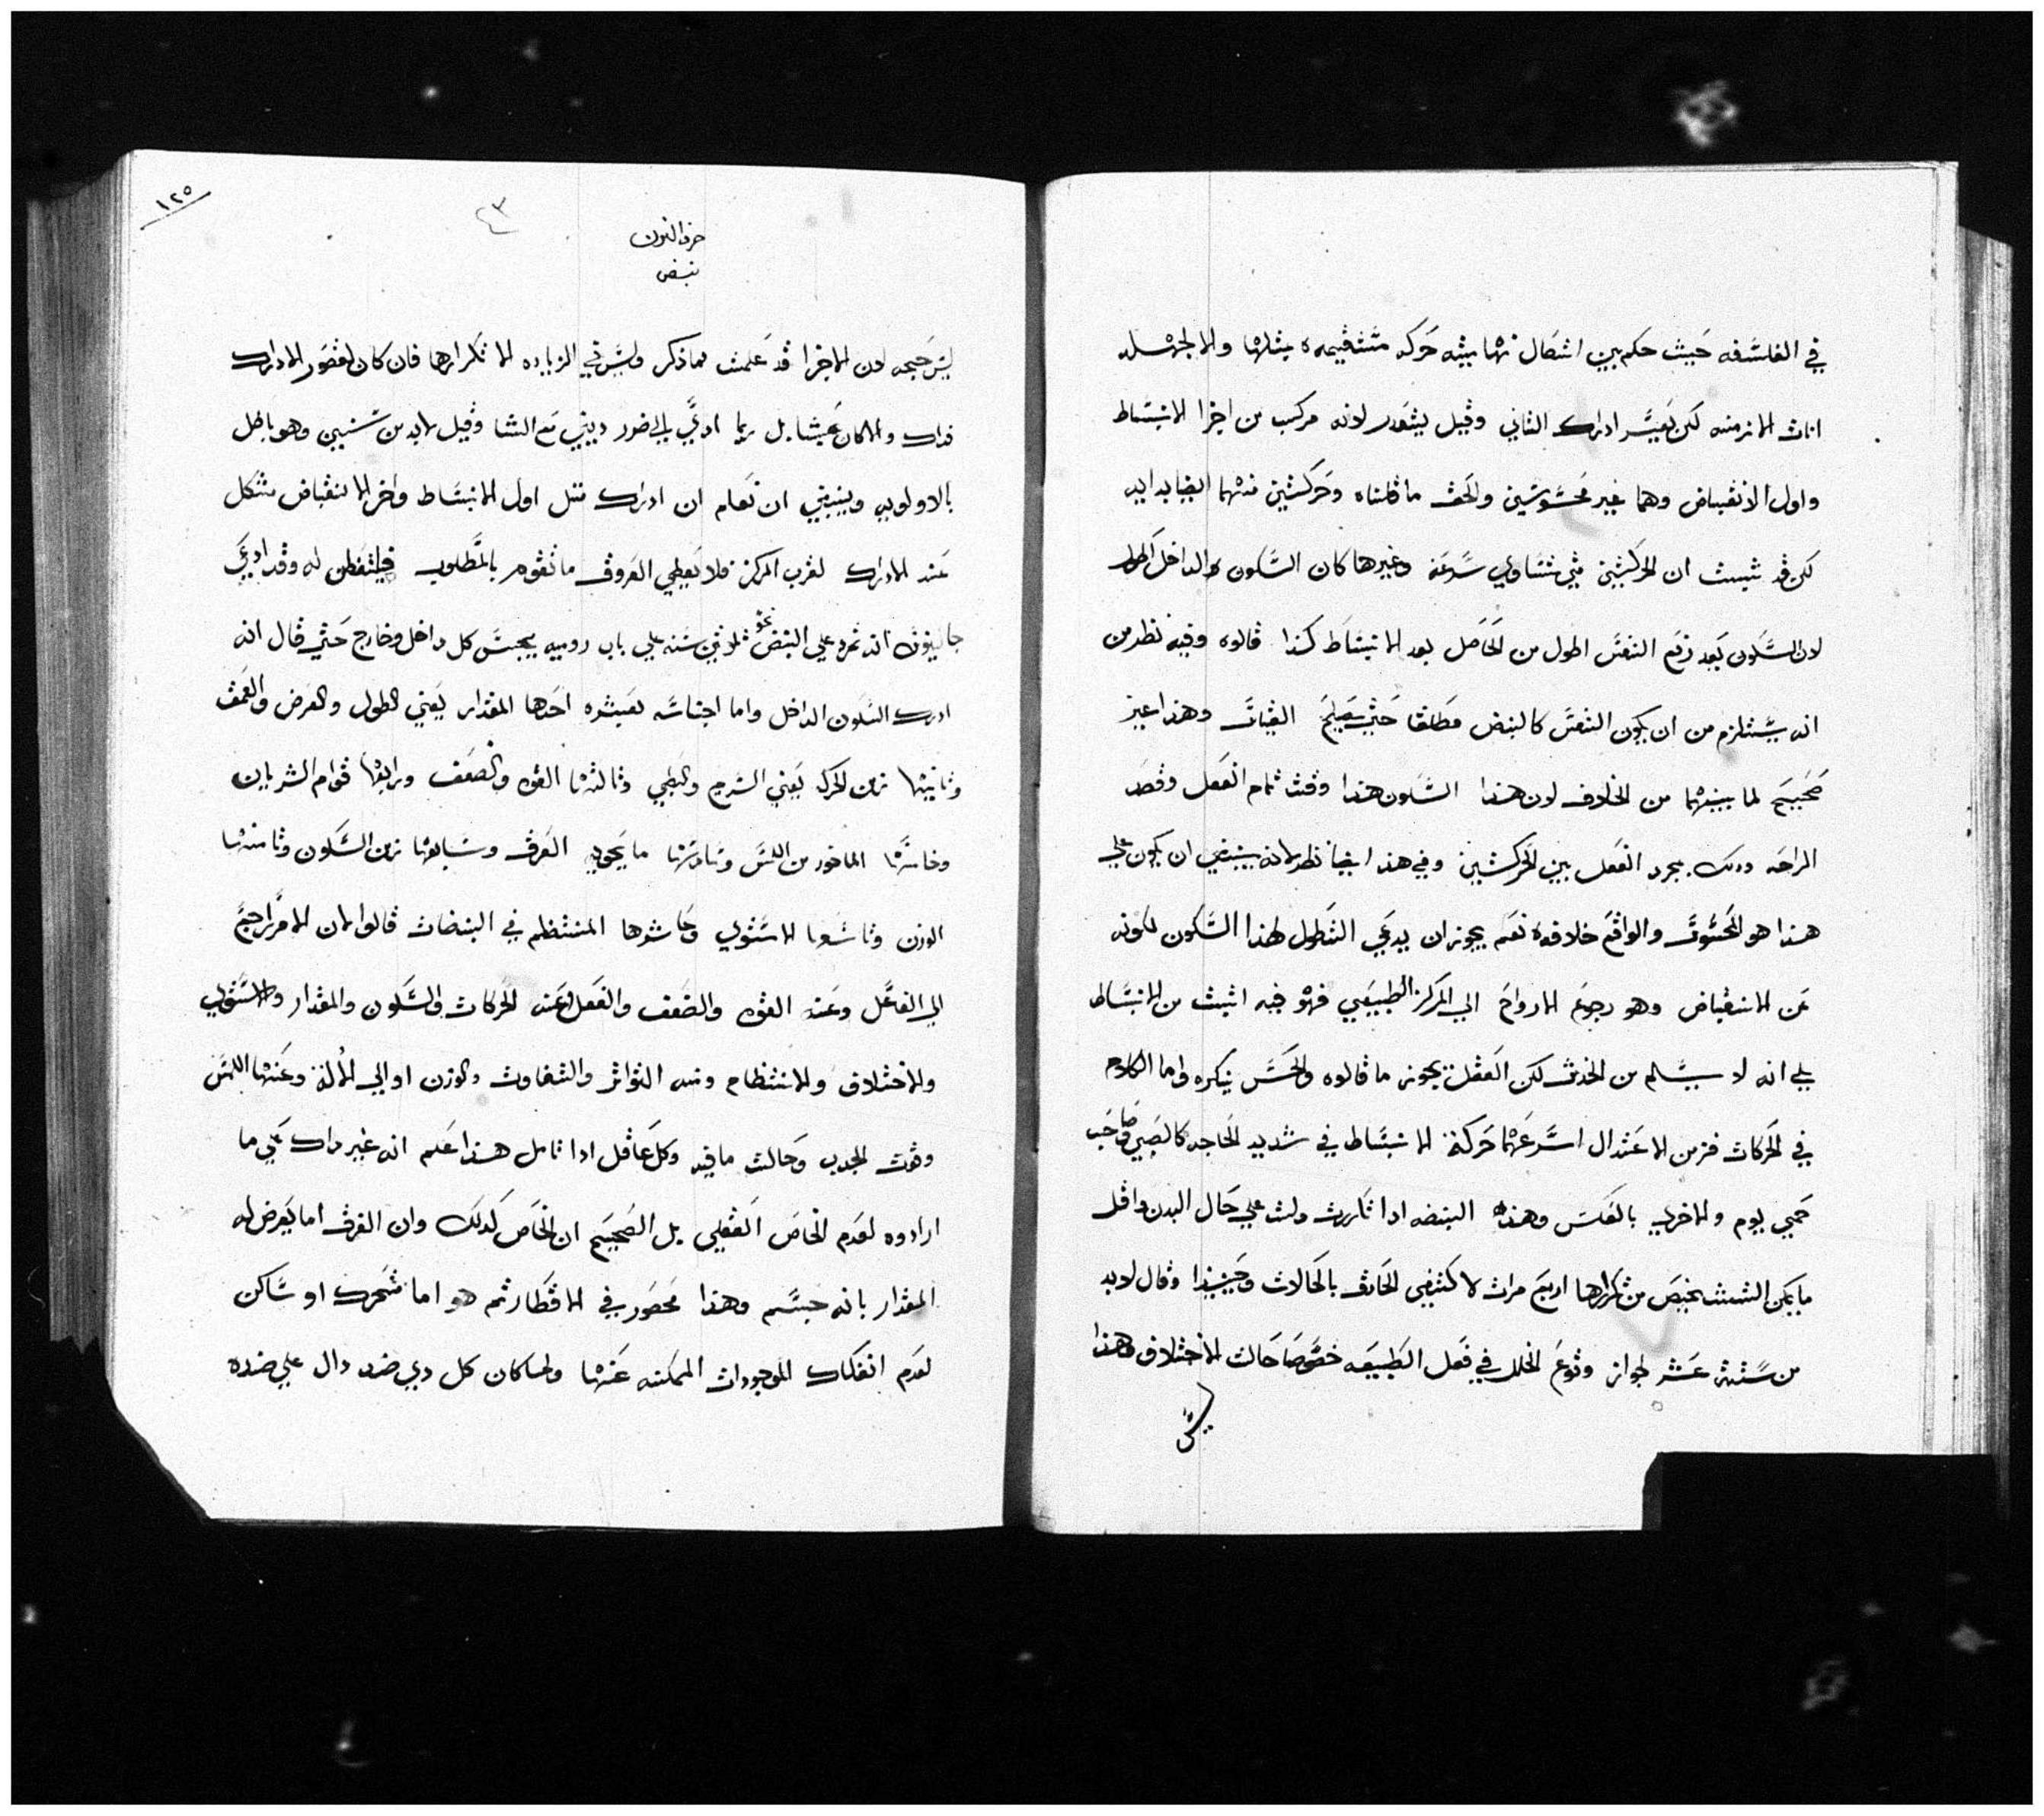 في الفلسفه حيث حكم بين اتصال نهايته حركه مستقيمه بمثلها والا لجهله
اناث الازمنه لكن يعسر ادراك الثاني وقيل يتعدر لانه مركب من اخرا الانبساط
واول الانقباض وهما غير محسوسين والحق ما قلناه وحركتين منهما ايضا بدايه
لكن قد ثبت ان الحركتين متي تساوي سرعه وغيرها كان السكون الداخل اطول
لان السكون بعد زفع النفس اطول من الحاصل بعد الانبساط كذا قالوه وفيه نظر من
انه يستلزم من ان يكون النفس كالنبض مطلقا حتي يصح القياس وهذا غير
صحيح لما بينهما من الخلاف لان هذا السكون هذا وقت تمام الفعل وقصد
الراحه ودلك مجرد الفصل بين الحركتين وفي هذا ايضا نظر لانه ينبغي ان يكون علي
هذا هو المحسوس والواقع خلافه نعم يجوز ان يدعي التطول لهذا السكون لكونه
عن الانقباض وهو رجوع الارواح الي المركز الطبيعي فهو فيه اثبت من الانبساط
علي انه لا يسلم من الخدش لكن العقل يجوز ما قالوه والحس ينكره واما الكلام
في الحركات فزمن الاعتدال اسرعهما حركة الانبساط في شديد الحاجه كالصبي وصاحب
حمي يوم والاخري بالعكس وهذه النبضه ادا تكررت دلت علي حال البدن واقل
ما يمكن التشخيص من تكرارها اربع مراث لاكتفي الحادق بالحالات وقال لابد
من ستة عشر لجواز وقوع الخلل في فعل الطبيعه خصوصا حالت الاختلاف وهذا
ليس
١٢٥
٤٣
حرف النون
نبض
ليس حجه لان الاجزا قد علمت مما ذكر وليس في الزياده الا تكرارها فان كان لقصور الادراك
فداك والا كان عبثا بل ربما ادي الي ضرر ديني مع النسا وقيل لابد من سنين وهو باطل
بالاولويه وينبغي ان تعلم ان ادراك مثل اول الانبساط واخر الانقباض مشكل
عند الادراك لقرب المركز فلا يعطي العروق ما تقوم بالمطلوب فليتفطن له وقد ادعي
جالينوس انه تمرد علي النبض نحو ثلاثين سنه علي باب روميه يجس كل داخل وخارج حتي قال انه
ادرك السكون الداخل واما اجناسه فعشره احدها المقدار يعني الطول والعرض والعمق
وثانيها زمن الحركه يعني السريع والبطي وثالثها القوه والضعف ورابعها قوام الشريان
وخامسها الماخود من اللمس وسادسها ما يحويه العرق وسابعها زمن السكون وثامنها
الوزن وتاسعها الاستوي وعاشرها المنتظم في النبضات قالوا لان الامر راجع
الي الفاعل وعنه القوه والضعف والفعل وعنه الحركات والسكون والمقدار والاستوي
والاختلاف والانتظام ومنه التواتر والتفاوت والوزن او الي الالة وعنها اللمس
وقوت الجدب وحالت ما فيه وكل عاقل ادا تامل هذا علم انه غير دال علي ما
ارادوه لعدم الخاص العقلي بل الصحيح ان الخاص كدلك وان العرق اما يعرض له
المقدار بانه جسم وهذا محصور في الاقطار ثم هو اما متحرك او ساكن
لعدم انفكاك الموجودات الممكنه عنها ولما كان كل دي ضد دال علي ضده